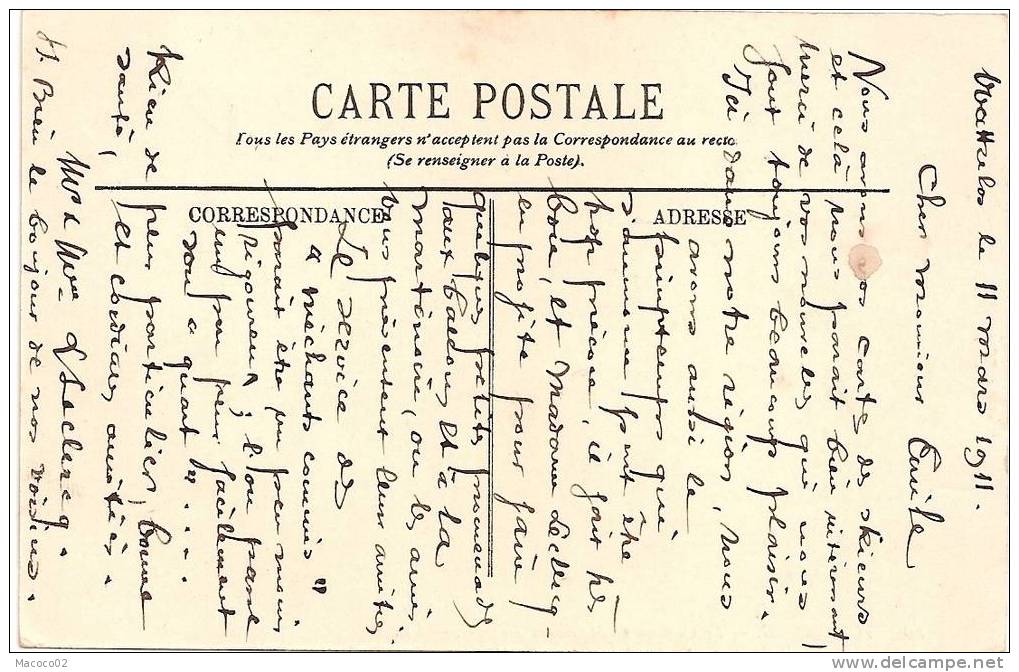 CARTE POSTALE
Tous les Pays étrangers n'acceptent pas la Correspondance au recto
(Se renseigner à la Poste).
CORRESPONDANCE
ADRESSE
Wattrelos le 11 mars 1911.
Cher monsieur Emile
Nous avons vos cartes de skieurs
et celà nous parait bien intéressant !
merci de vos nouvelles qui nous
font toujours beaucoup plaisir.
Ici dans notre région, nous
avons aussi le
printemps qui
s'annonce peut être
trop précoce, il fait très
bon, et Madame Leclercq
en profite pour faire
quelques petites promenades
aux et à la
, ou les amies
vous présentent leurs amitiés
Le service des
"méchants commis"
parait être un peu moins
rigoureux; l'on parle
un peu plus facilement
quant
Rien de plus particulier, bonne
santé, et cordiales amitiés.
Mr & Mme Leclercq.
Bien le bonjour de nos voisins.
Macoco02
delcampe.net